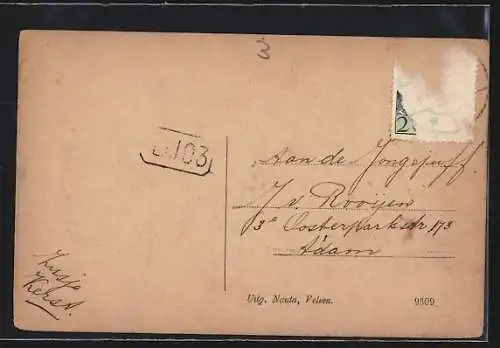 3
2
L.103
Aan de Jongejuff.
J v. Rooijen
3e Oosterparkstr 173
A'dam
Zusje
Kerst.
Uitg. Nauta, Velsen.
9609